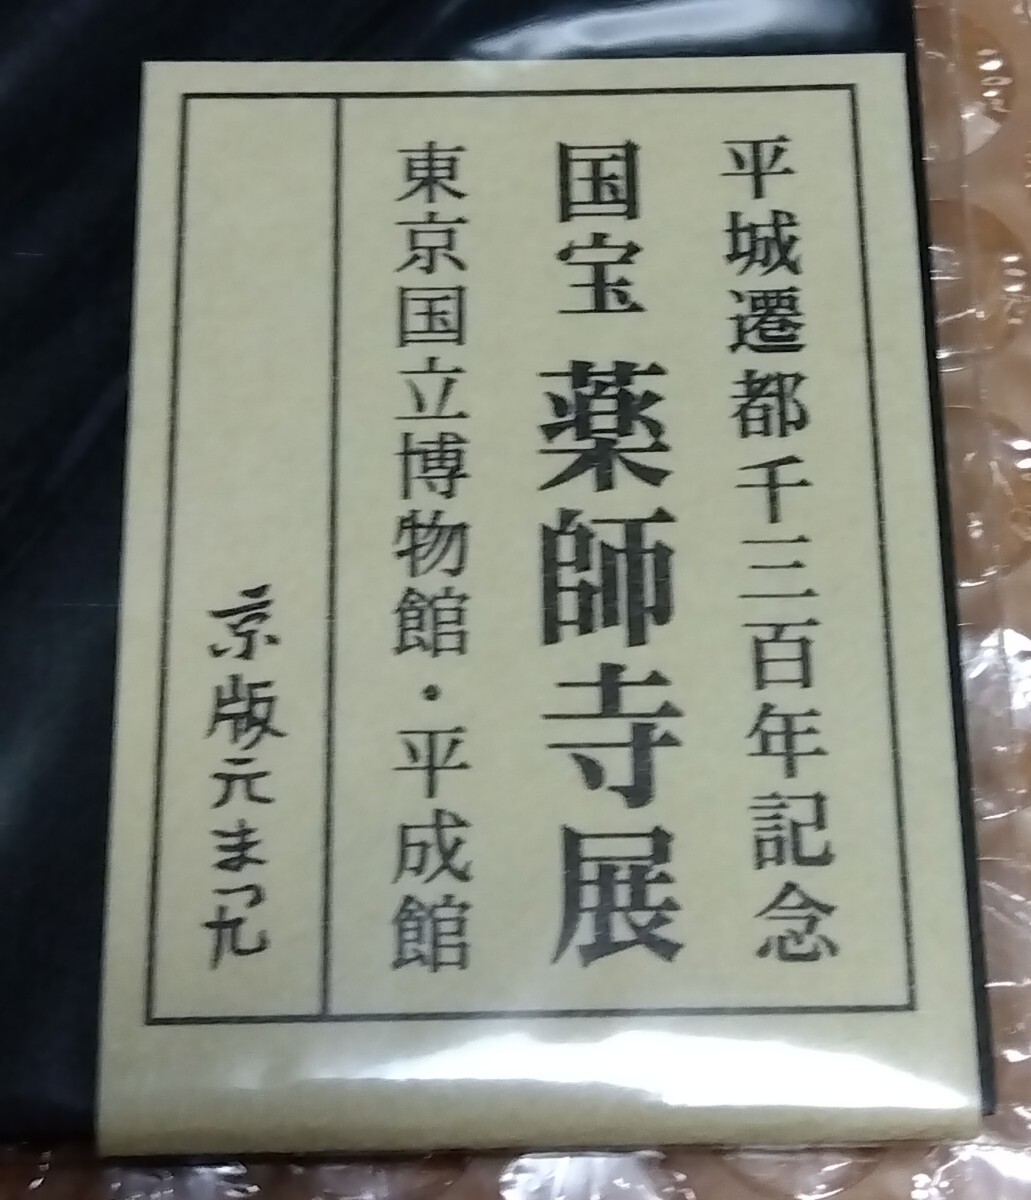 平城遷都千三百年記念
国宝 薬師寺展
東京国立博物館・平成館
京版元まつ九